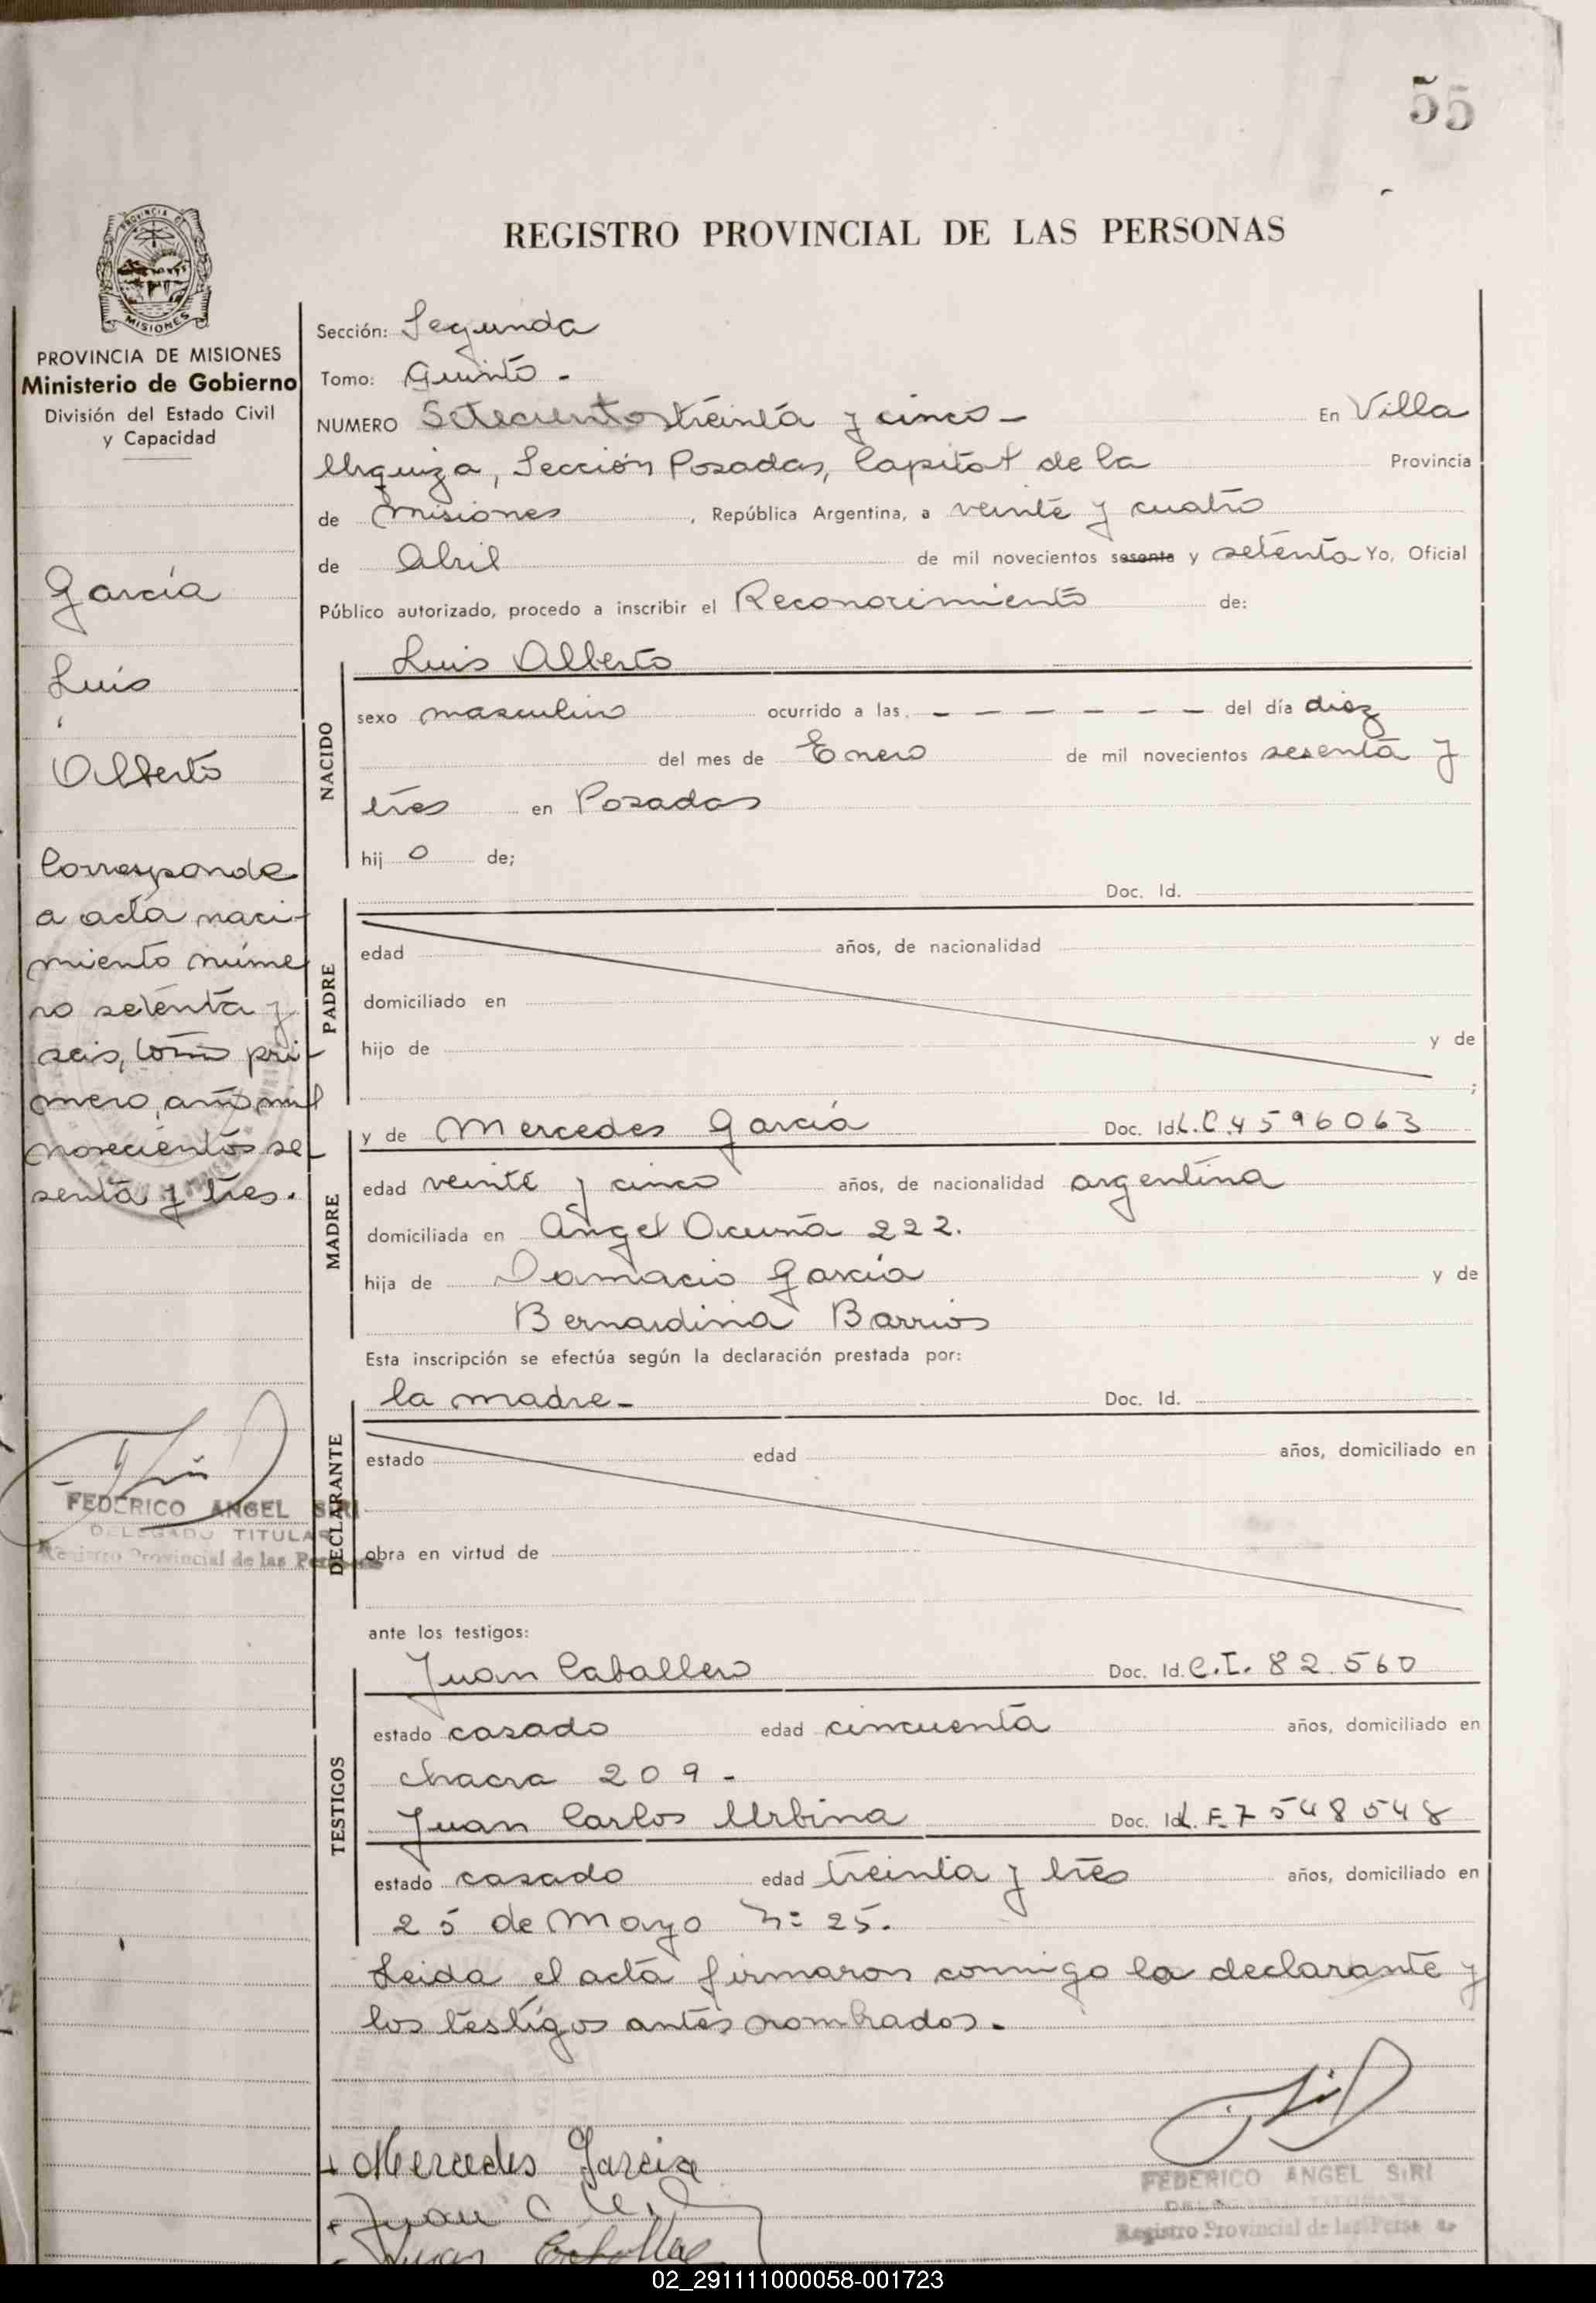 55
REGISTRO PROVINCIAL DE LAS PERSONAS
PROVINCIA DE MISIONES
MISIONES
PROVINCIA DE MISIONES
Ministerio de Gobierno
División del Estado Civil
y Capacidad
García
Luis
Alberto
Corresponde
a acta naci-
miento núme
ro setenta y
seis, tomo pri-
mero, año mil
novecientos se-
senta y tres.
FEDERICO ANGEL SIRI
DELEGADO TITULAR
Registro Provincial de las Personas
Sección: Segunda
Tomo: Quinto -
NUMERO Setecientos treinta y cinco - En Villa
Urquiza, Sección Posadas, Capital de la Provincia
de Misiones, República Argentina, a veinte y cuatro
de Abril de mil novecientos sesenta y setenta Yo, Oficial
Público autorizado, procedo a inscribir el Reconocimiento de:
NACIDO
Luis Alberto
sexo masculino ocurrido a las - - - - - - - del día diez
del mes de Enero de mil novecientos sesenta y
tres en Posadas
hij o de;
PADRE
Doc. Id.
edad años, de nacionalidad
domiciliado en
hijo de y de
;
MADRE
y de Mercedes García Doc. Id. L.C. 4596063
edad veinte y cinco años, de nacionalidad argentina
domiciliada en Angel Acuña 222.
hija de Damacio García y de
Bernardina Barrios
Esta inscripción se efectúa según la declaración prestada por:
DECLARANTE
la madre - Doc. Id.
estado edad años, domiciliado en
obra en virtud de
ante los testigos:
TESTIGOS
Juan Caballero Doc. Id. C.I. 82.560
estado casado edad cincuenta años, domiciliado en
chacra 209 -
Juan Carlos Urbina Doc. Id. L.E. 7548548
estado casado edad treinta y tres años, domiciliado en
25 de Mayo Nº 25.
Leida el acta firmaron conmigo la declarante y
los testigos antes nombrados.
Mercedes Garcia
Juan C
Juan
FEDERICO ANGEL SIRI
DELEGADO TITULAR
Registro Provincial de las Personas
02_291111000058-001723